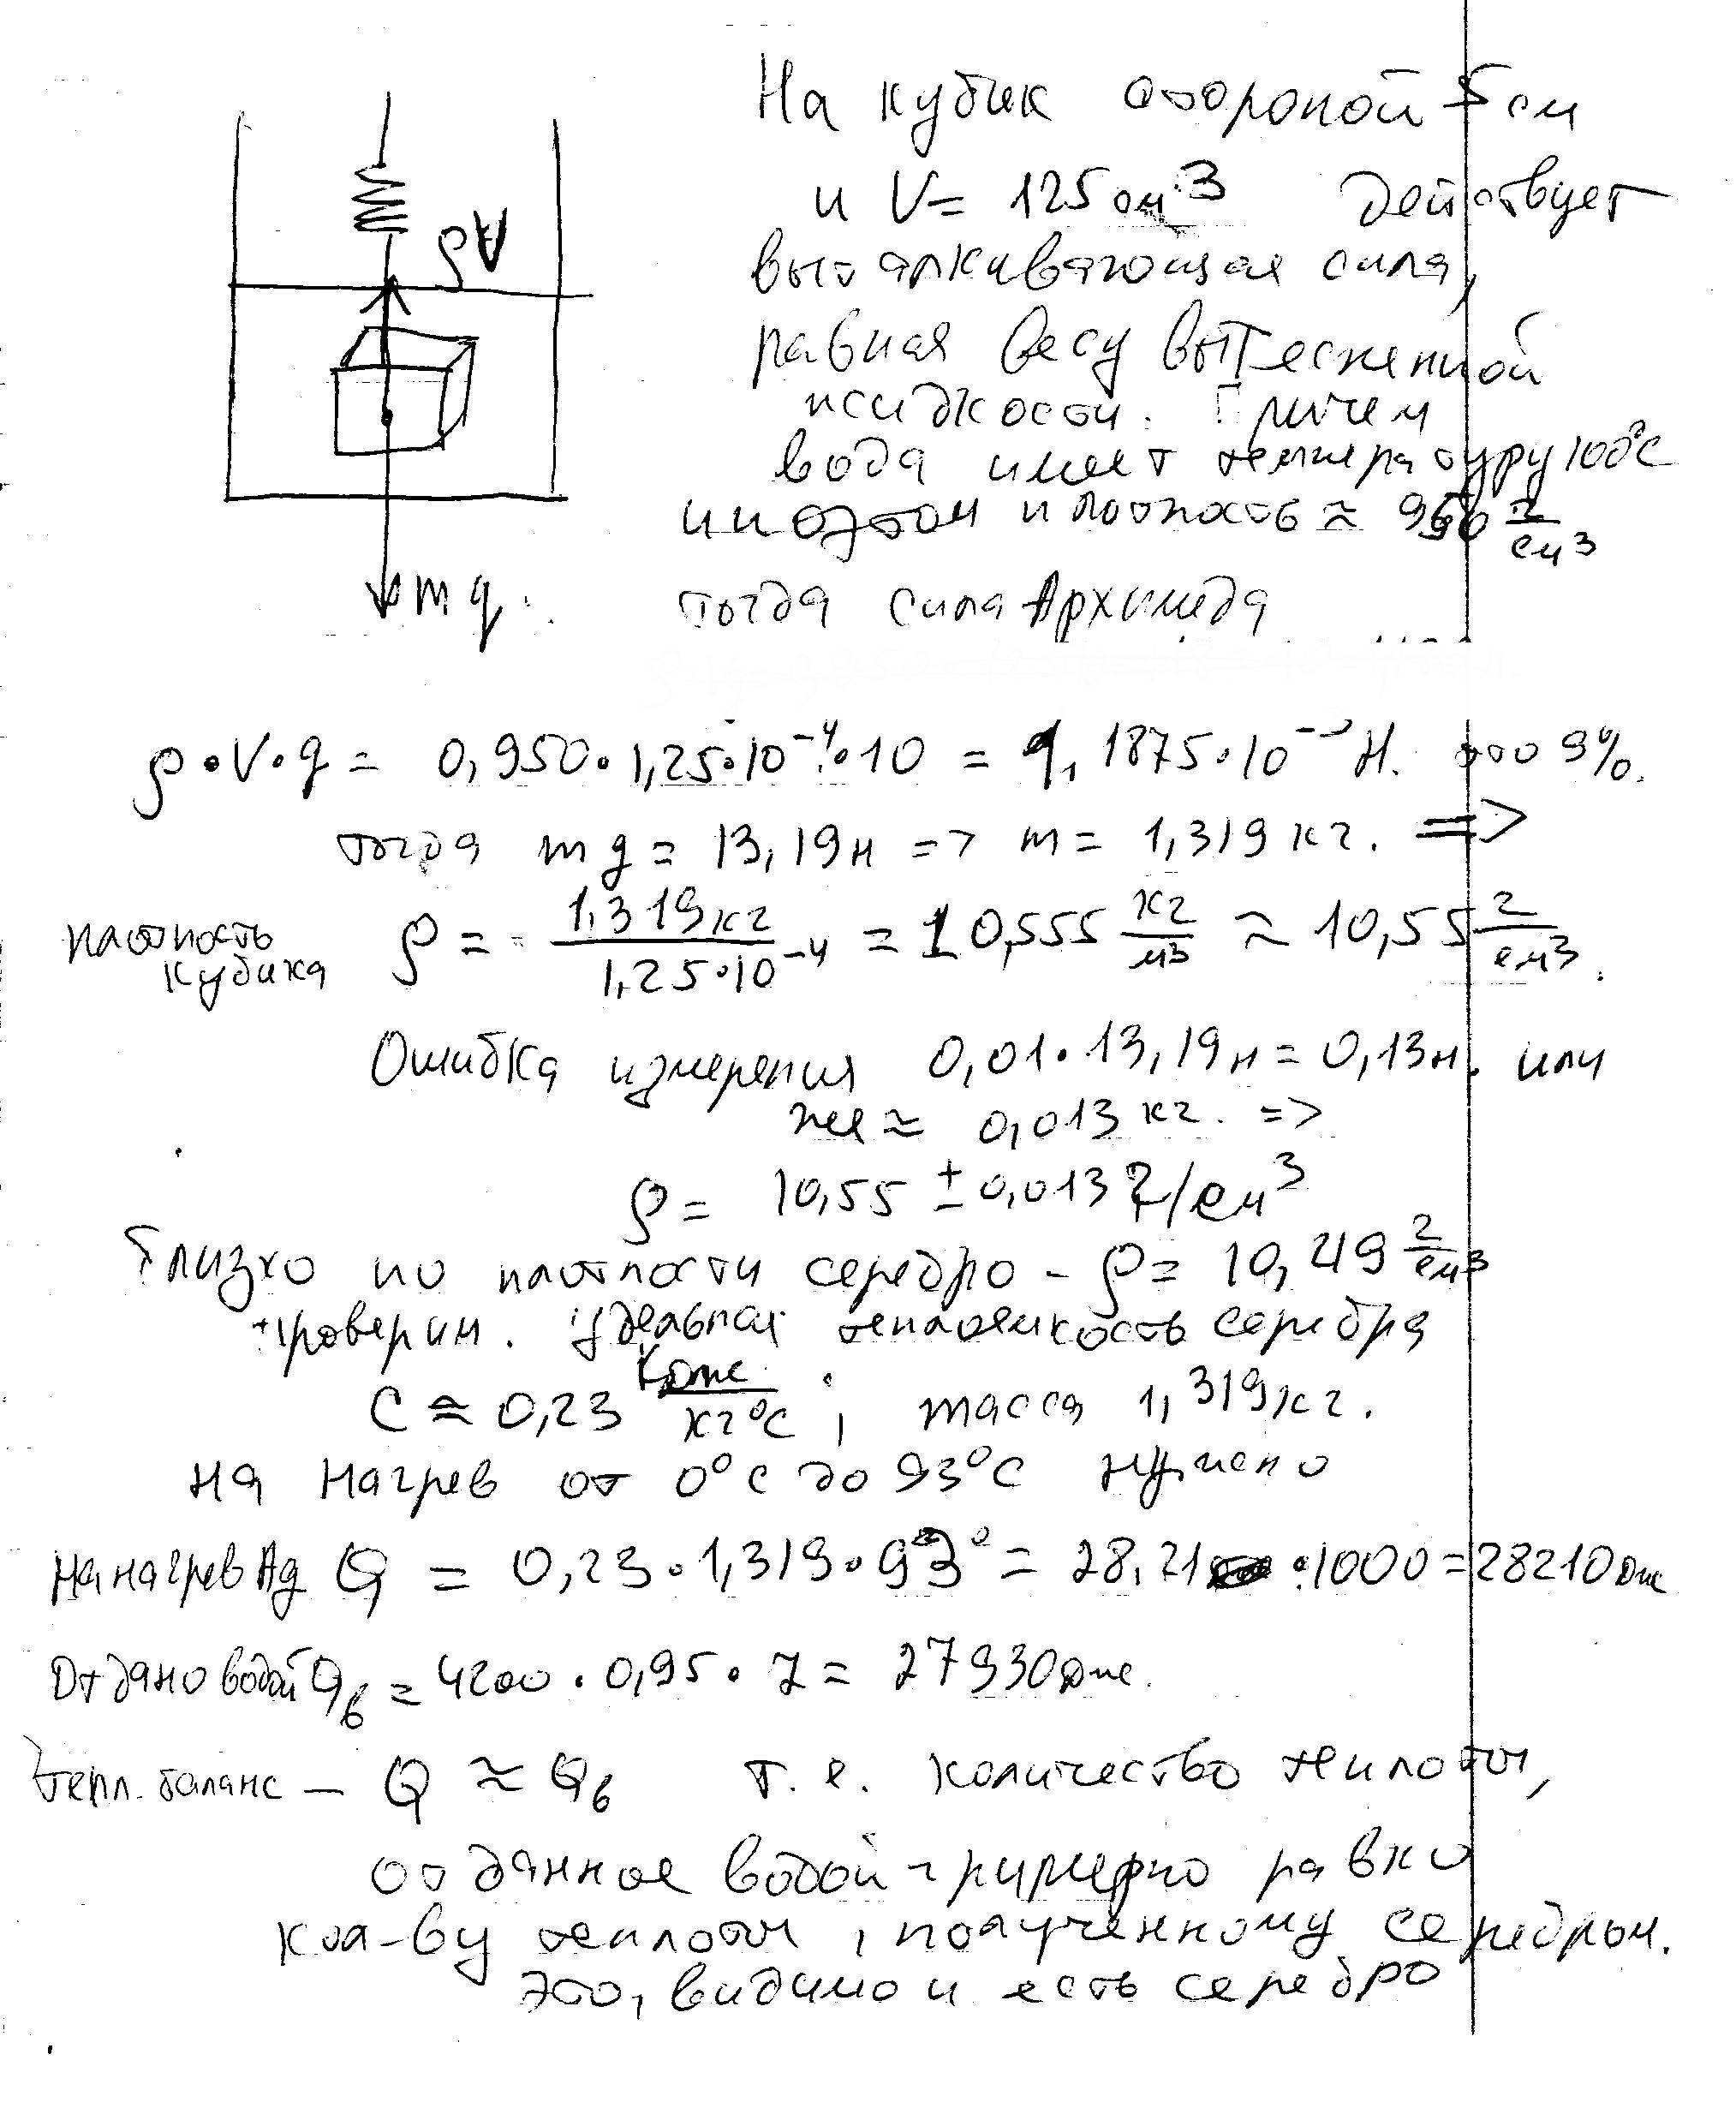 На кубик стороной 5 см
и V= 125 см3 действует
ρV
выталкивающая сила,
равная весу вытесненной
жидкости. Причем
вода имеет температуру 100°C
и плотность ≈ 950 г/см3
mg.
тогда сила Архимеда
ρ·V·g = 0,950·1,25·10-4·10 = 1,1875·10 Н. 9%.
тогда mg = 13,19н => m = 1,319 кг. =>
плотность кубика ρ = 1,319кг / 1,25·10-4 = 10,555 кг/м3 ≈ 10,55 г/см3.
Ошибка измерения 0,01·13,19н = 0,13н. или
же ≈ 0,013 кг. =>
ρ = 10,55 ± 0,013 г/см3
Близко по плотности серебро – ρ = 10,49 г/см3
проверим. Удельная теплоемкость серебра
C ≈ 0,23 Кдж/кг°C ; масса 1,319кг.
на нагрев от 0°C до 93°C нужно
на нагрев Ag Q = 0,23·1,319·93° = 28,21 ·1000 = 28210 дж
Отдано водой Qв = 4200·0,95·7 = 27930 дж.
тепл. баланс – Q ≈ Qв т.е. количество теплоты,
отданное водой примерно равно
кол-ву теплоты, полученному серебром.
это, видимо и есть серебро